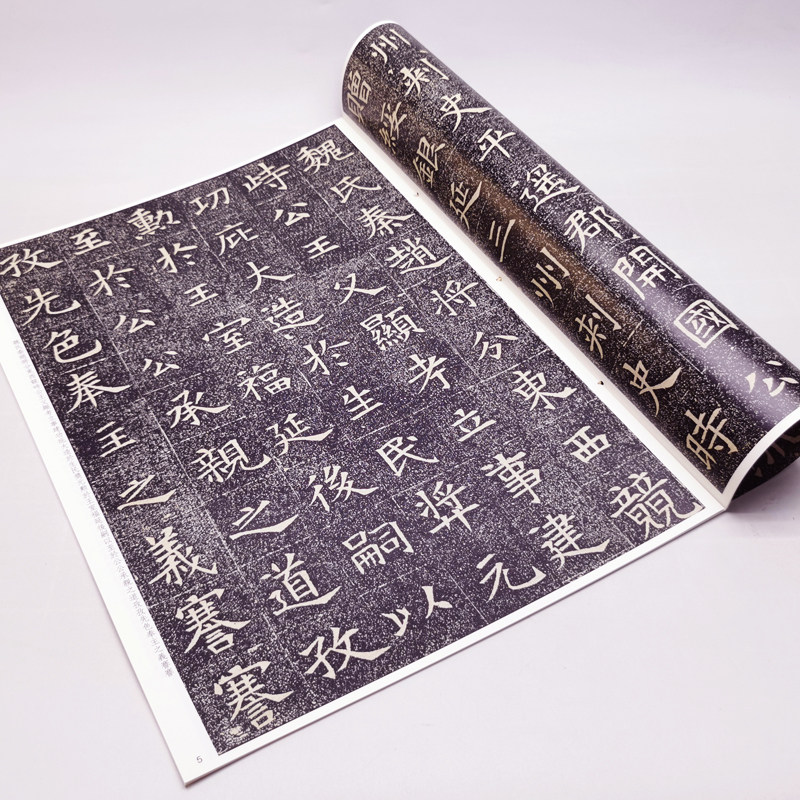 州刺史平選郡開國公
贈綏銀延三州刺史時
魏氏秦趙將分東西競
峙公王父顯考立事建
功庇大造於生民將元
勳於王室福延後嗣以
至於公公承親之道孜
孜先色奉主之義謇謇
5